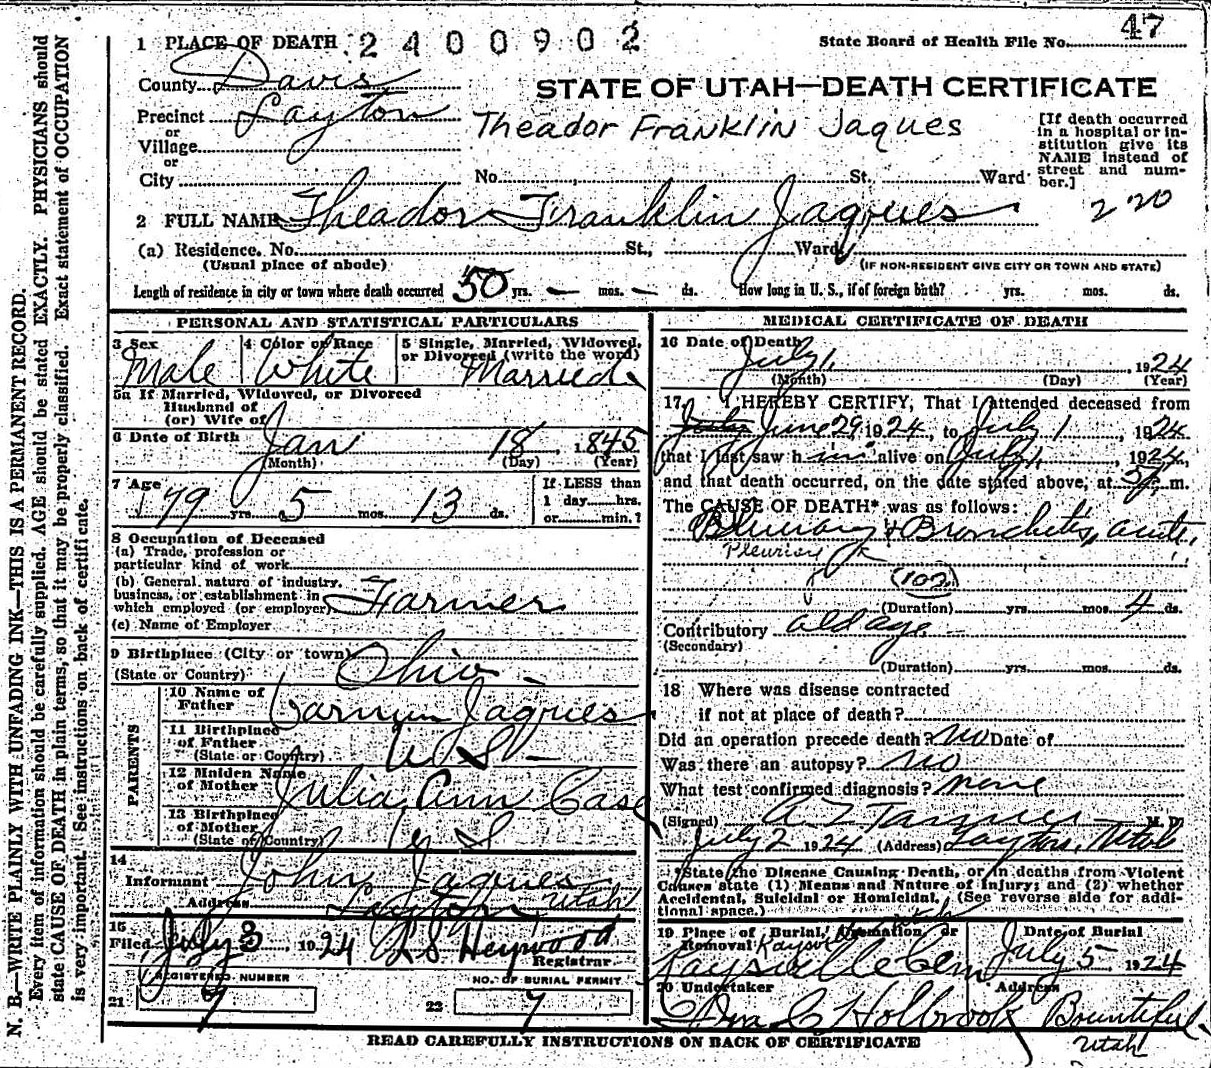 47
1 PLACE OF DEATH 2400902
State Board of Health File No.
County Davis
STATE OF UTAH—DEATH CERTIFICATE
Precinct Layton
Theador Franklin Jaques
or
Village
or
City
No. St. Ward
[If death occurred
in a hospital or in-
stitution give its
NAME instead of
street and num-
ber.]
220
2 FULL NAME Theador Franklin Jaques
(a) Residence. No. St., Ward,
(Usual place of abode)
(IF NON-RESIDENT GIVE CITY OR TOWN AND STATE)
Length of residence in city or town where death occurred 50 yrs. — mos. — ds. How long in U. S., if of foreign birth? yrs. mos. ds.
PERSONAL AND STATISTICAL PARTICULARS
3 Sex 4 Color or Race 5 Single, Married, Widowed,
or Divorced (write the word)
Male White Married
5a If Married, Widowed, or Divorced
Husband of
(or) Wife of
6 Date of Birth Jan 18, 1845
(Month) (Day) (Year)
7 Age 79 yrs. 5 mos. 13 ds.
If LESS than
1 day hrs.
or min.?
8 Occupation of Deceased
(a) Trade, profession or
particular kind of work
(b) General nature of industry,
business, or establishment in
which employed (or employer) Farmer
(c) Name of Employer
9 Birthplace (City or town)
(State or Country) Ohio —
PARENTS
10 Name of
Father Jaques
11 Birthplace
of Father
(State or Country) U S —
12 Maiden Name
of Mother Julia Ann Case
13 Birthplace
of Mother
(State or Country) U S
14
Informant John Jaques
Address Layton Utah
15
Filed July 3, 1924 Heywood
Registrar
REGISTERED NUMBER NO. OF BURIAL PERMIT
21 9 22 9
MEDICAL CERTIFICATE OF DEATH
16 Date of Death
July 1, 1924
(Month) (Day) (Year)
17 I HEREBY CERTIFY, That I attended deceased from
June 29, 1924, to July 1, 1924
that I last saw him alive on July 1, 1924,
and that death occurred, on the date stated above, at m.
The CAUSE OF DEATH* was as follows:
Pleurisy & Bronchitis, acute
Pleurisy
(102)
(Duration) yrs. mos. 4 ds.
Contributory old age
(Secondary)
(Duration) yrs. mos. ds.
18 Where was disease contracted
if not at place of death?
Did an operation precede death? No Date of
Was there an autopsy? no
What test confirmed diagnosis? none
(Signed) A Z Tanner M. D.
July 2 1924 (Address) Layton, Utah
*State the Disease Causing Death, or in deaths from Violent
Causes state (1) Means and Nature of Injury; and (2) whether
Accidental, Suicidal or Homicidal. (See reverse side for addi-
tional space.)
19 Place of Burial, Cremation, or
Removal Kaysville
Kaysville Cem
Date of Burial
July 5 1924
20 Undertaker Address
Holbrook Bountiful
Utah
READ CAREFULLY INSTRUCTIONS ON BACK OF CERTIFICATE
N. B.—WRITE PLAINLY WITH UNFADING INK—THIS IS A PERMANENT RECORD.
Every item of information should be carefully supplied. AGE should be stated EXACTLY. PHYSICIANS should
state CAUSE OF DEATH in plain terms, so that it may be properly classified. Exact statement of OCCUPATION
is very important. See instructions on back of certificate.